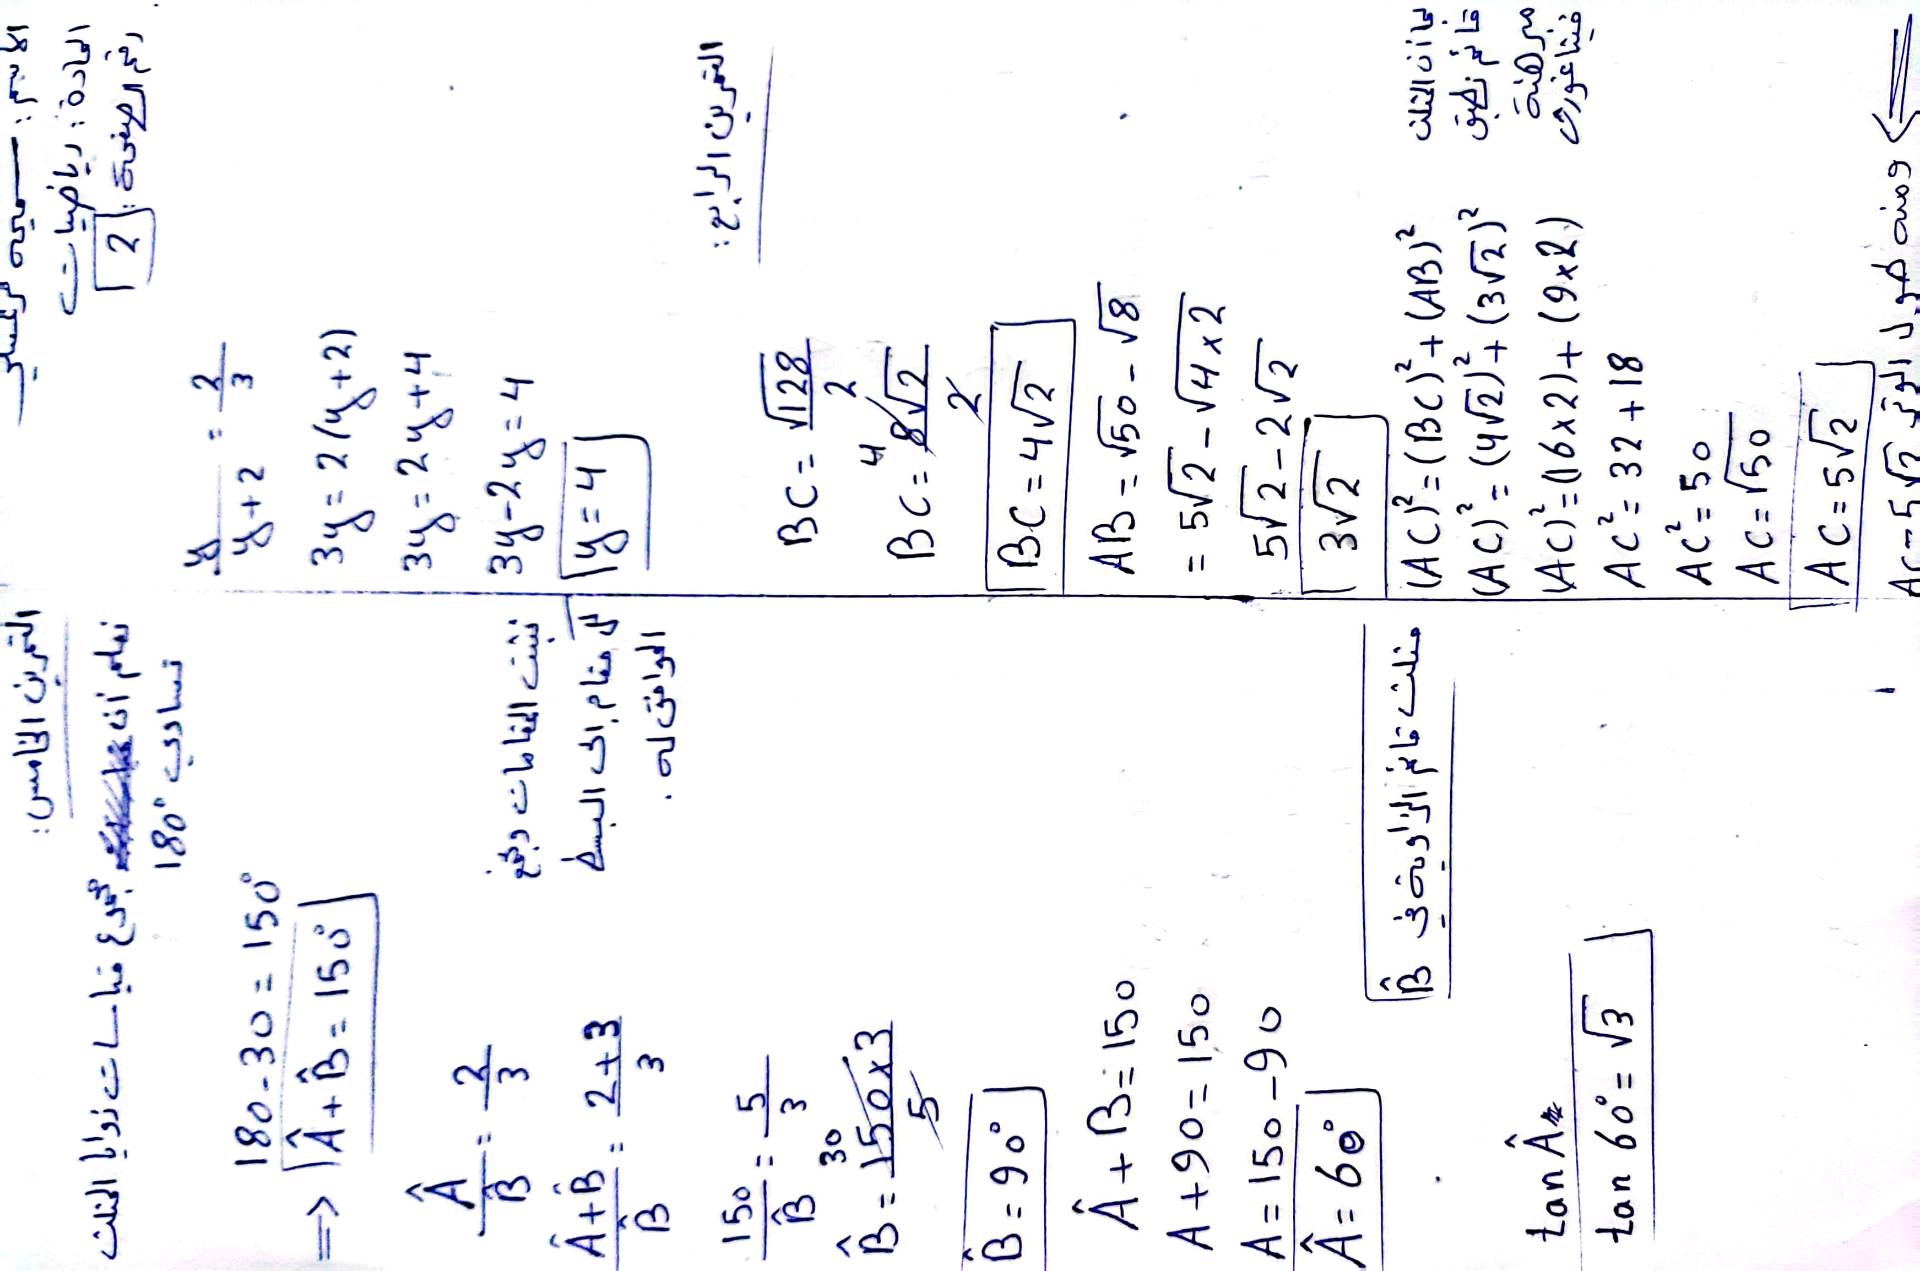 الاسم:
المادة: رياضيات
رقم الصفحة: 2
y/(y+2) = 2/3
3y = 2(y+2)
3y = 2y+4
3y-2y = 4
y = 4
التمرين الرابع:
BC = √128/2
BC = 8√2/2 4
BC = 4√2
AB = √50 - √8
= 5√2 - √4×2
5√2 - 2√2
3√2
بما أن المثلث
قائم نطبق
مبرهنة
فيثاغورث
(AC)² = (BC)² + (AB)²
(AC)² = (4√2)² + (3√2)²
(AC)² = (16×2) + (9×2)
AC² = 32 + 18
AC² = 50
AC = √50
AC = 5√2
ومنه طول الوتر AC = 5√2 ⇐
التمرين الخامس:
نعلم أن مجموع قياسات زوايا المثلث
تساوي 180°
180 - 30 = 150°
=> Â + B̂ = 150°
Â/B̂ = 2/3
نثبت المقامات ونجمع
كل مقام إلى البسط
الموافق له.
(Â+B̂)/B̂ = (2+3)/3
150/B̂ = 5/3
B̂ = 150×3/5 30
B̂ = 90°
Â + B̂ = 150
A + 90 = 150
A = 150 - 90
Â = 60°
مثلث قائم الزاوية في B̂
tan Â
tan 60° = √3